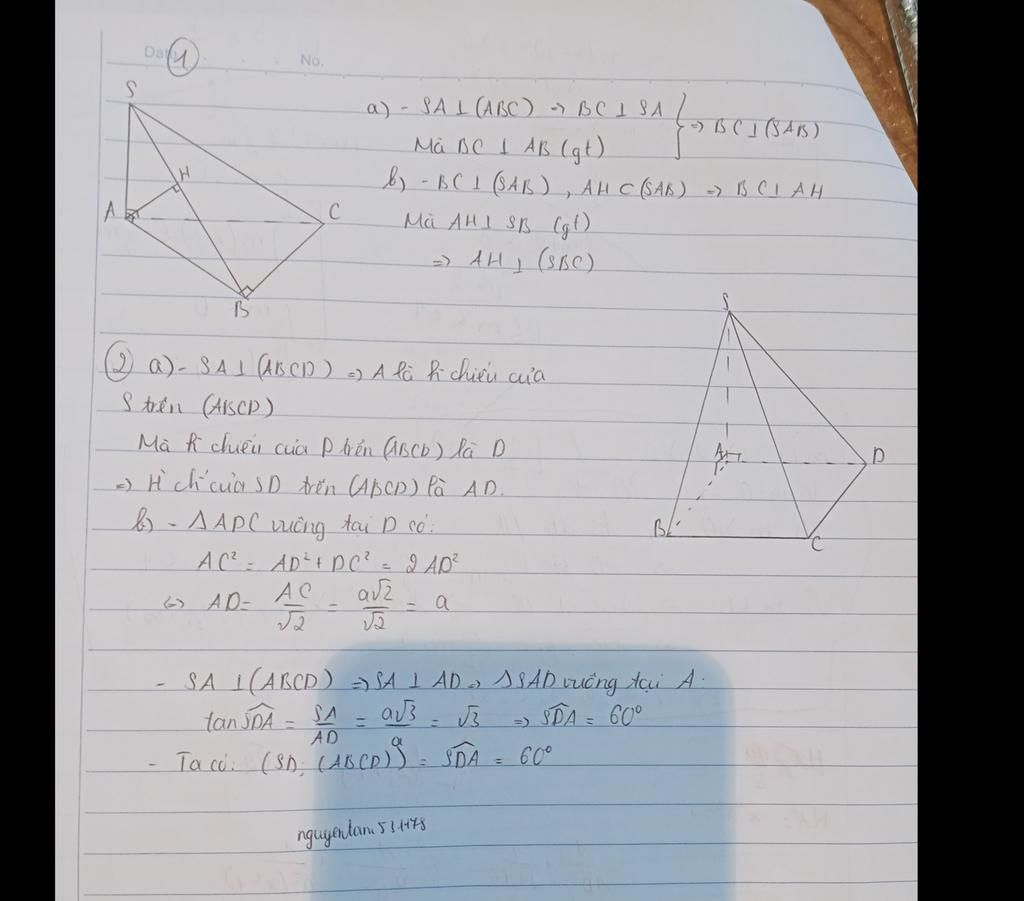 Date 1 No.
S
H
A
C
B
a) - SA ⊥ (ABC) => BC ⊥ SA } => BC ⊥ (SAB)
Mà BC ⊥ AB (gt)
b) - BC ⊥ (SAB), AH ⊂ (SAB) => BC ⊥ AH
Mà AH ⊥ SB (gt)
=> AH ⊥ (SBC)
S
A
D
B
C
2 a) - SA ⊥ (ABCD) => A là h chiếu của
S trên (ABCD)
Mà h chiếu của D trên (ABCD) là D
=> H ch của SD trên (ABCD) là AD.
b) - ΔADC vuông tại D có:
AC² = AD² + DC² = 2AD²
<=> AD = AC/√2 = a√2/√2 = a
- SA ⊥ (ABCD) => SA ⊥ AD => ΔSAD vuông tại A:
tan SDA = SA/AD = a√3/a = √3 => SDA = 60°
- Ta có: (SD; (ABCD)) = SDA = 60°